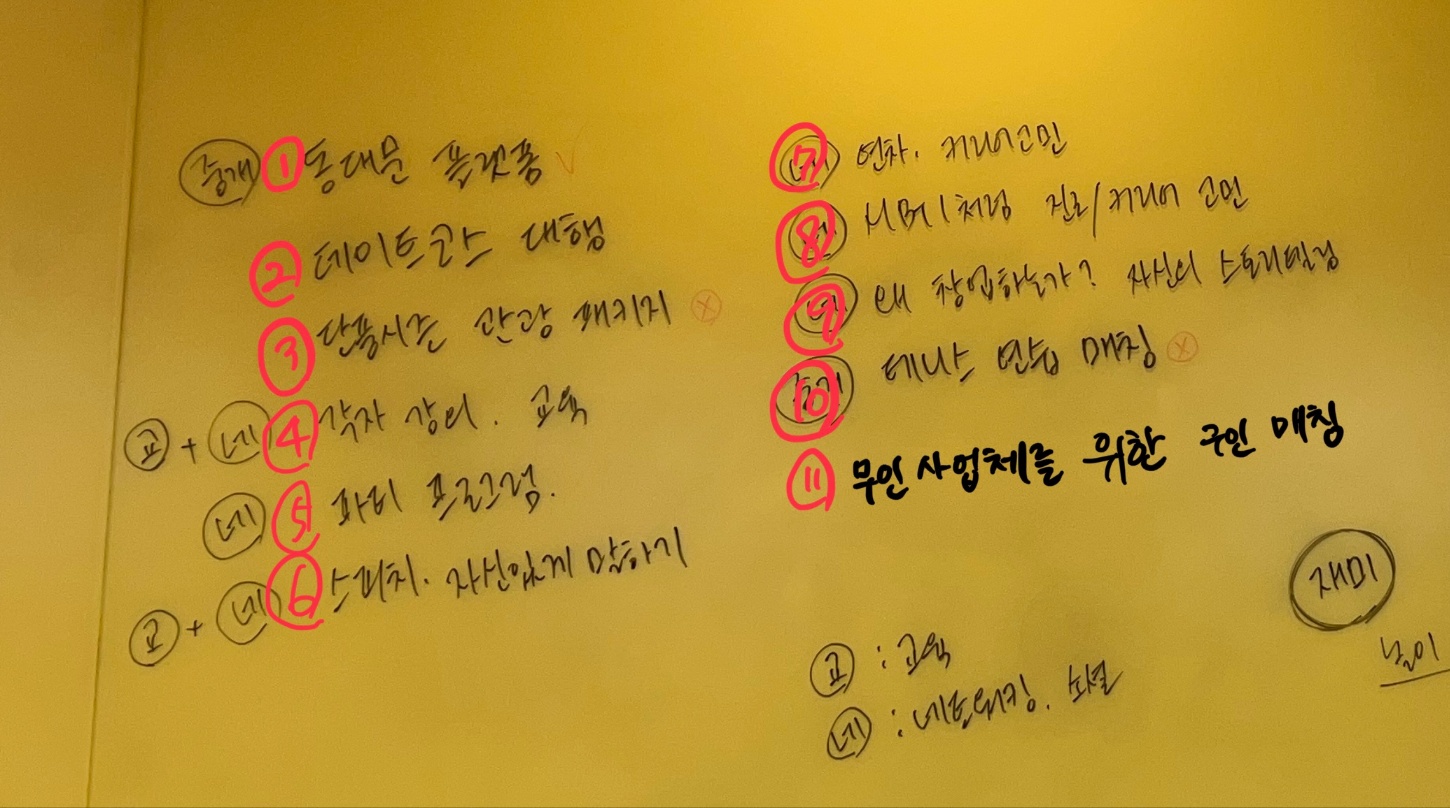 중개 1 동대문 플랫폼 ✓
2 데이트코스 대행
3 단풍시즌 관광 패키지 ⓧ
교 + 네 4 각자 강의. 교육
네 5 파티 프로그램.
교 + 네 6 스피치. 자신있게 말하기
7 연차. 커리어고민
8 처럼 진로/커리어 고민
네 9 왜 창업하는가? 자신의 스토리텔링
중개 10 테니스 연습 매칭 ⓧ
11 무인 사업체를 위한 구인 매칭
재미
놀이
교 : 교육
네 : 네트워킹. 소셜